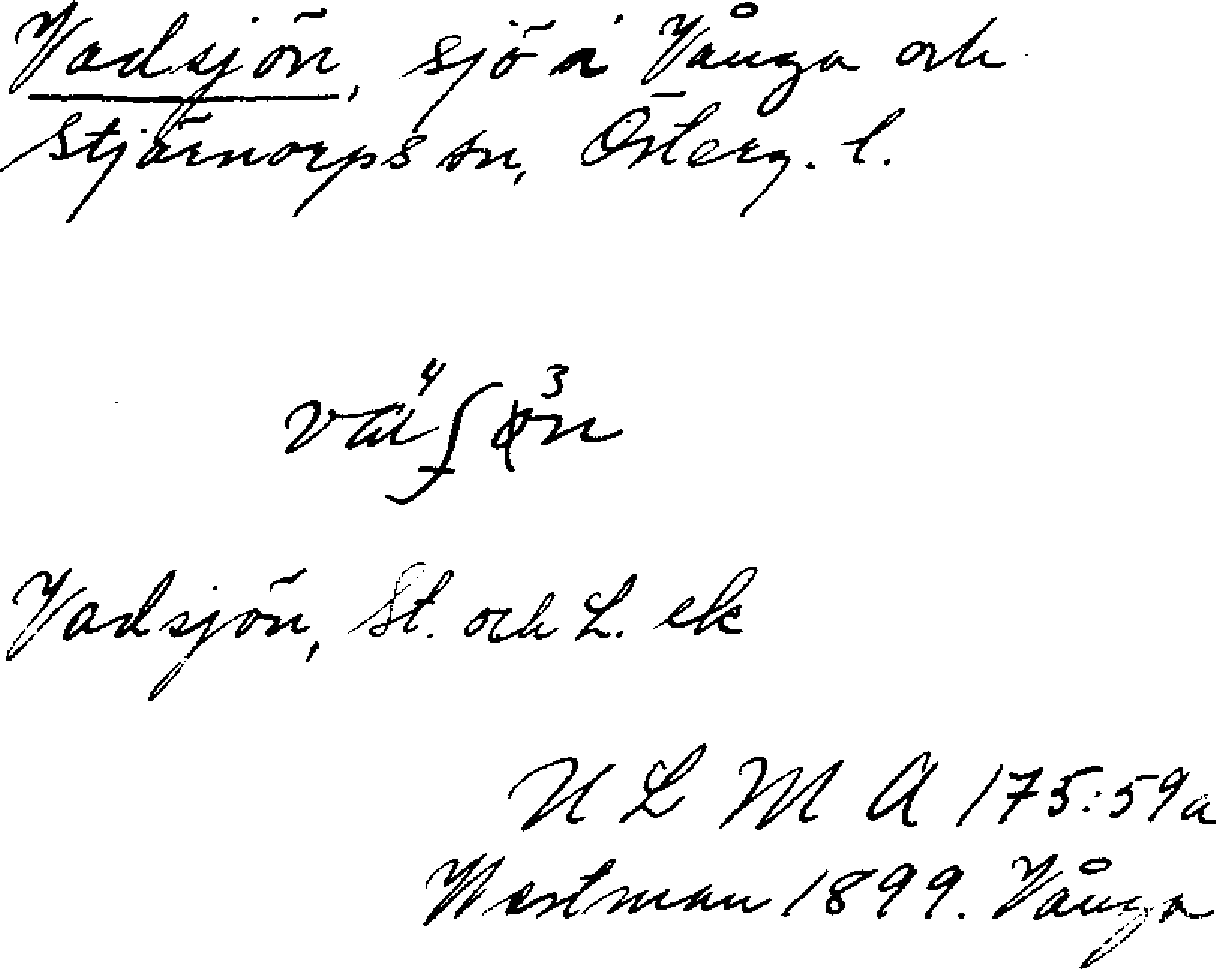 Vadsjön, sjö i Vånga och
Stjärnorps sn, Österg. l.
Vadsjön, St. och L. ek
ULMA 175:59a
Westman 1899. Vånga